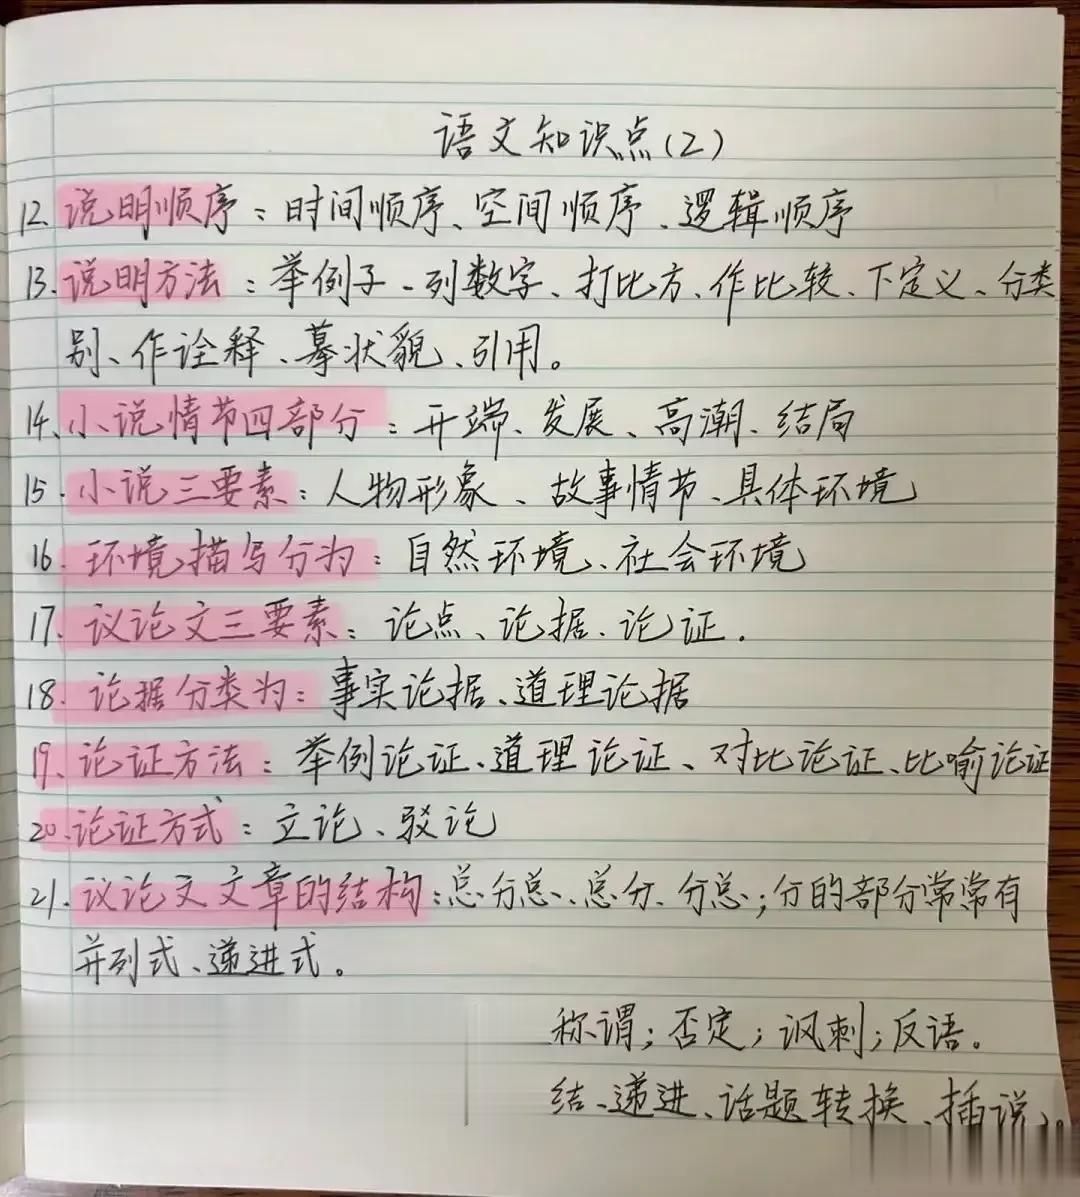 语文知识点(2)
12. 说明顺序：时间顺序、空间顺序、逻辑顺序
13. 说明方法：举例子、列数字、打比方、作比较、下定义、分类
别、作诠释、摹状貌、引用。
14、小说情节四部分：开端、发展、高潮、结局
15. 小说三要素：人物形象、故事情节、具体环境
16. 环境描写分为：自然环境、社会环境
17. 议论文三要素：论点、论据、论证.
18. 论据分类为：事实论据、道理论据
19、论证方法：举例论证、道理论证、对比论证、比喻论证
20.论证方式：立论、驳论
21. 议论文文章的结构：总分总、总分、分总；分的部分常常有
并列式、递进式。
称谓；否定；讽刺；反语。
结、递进、话题转换、插说、